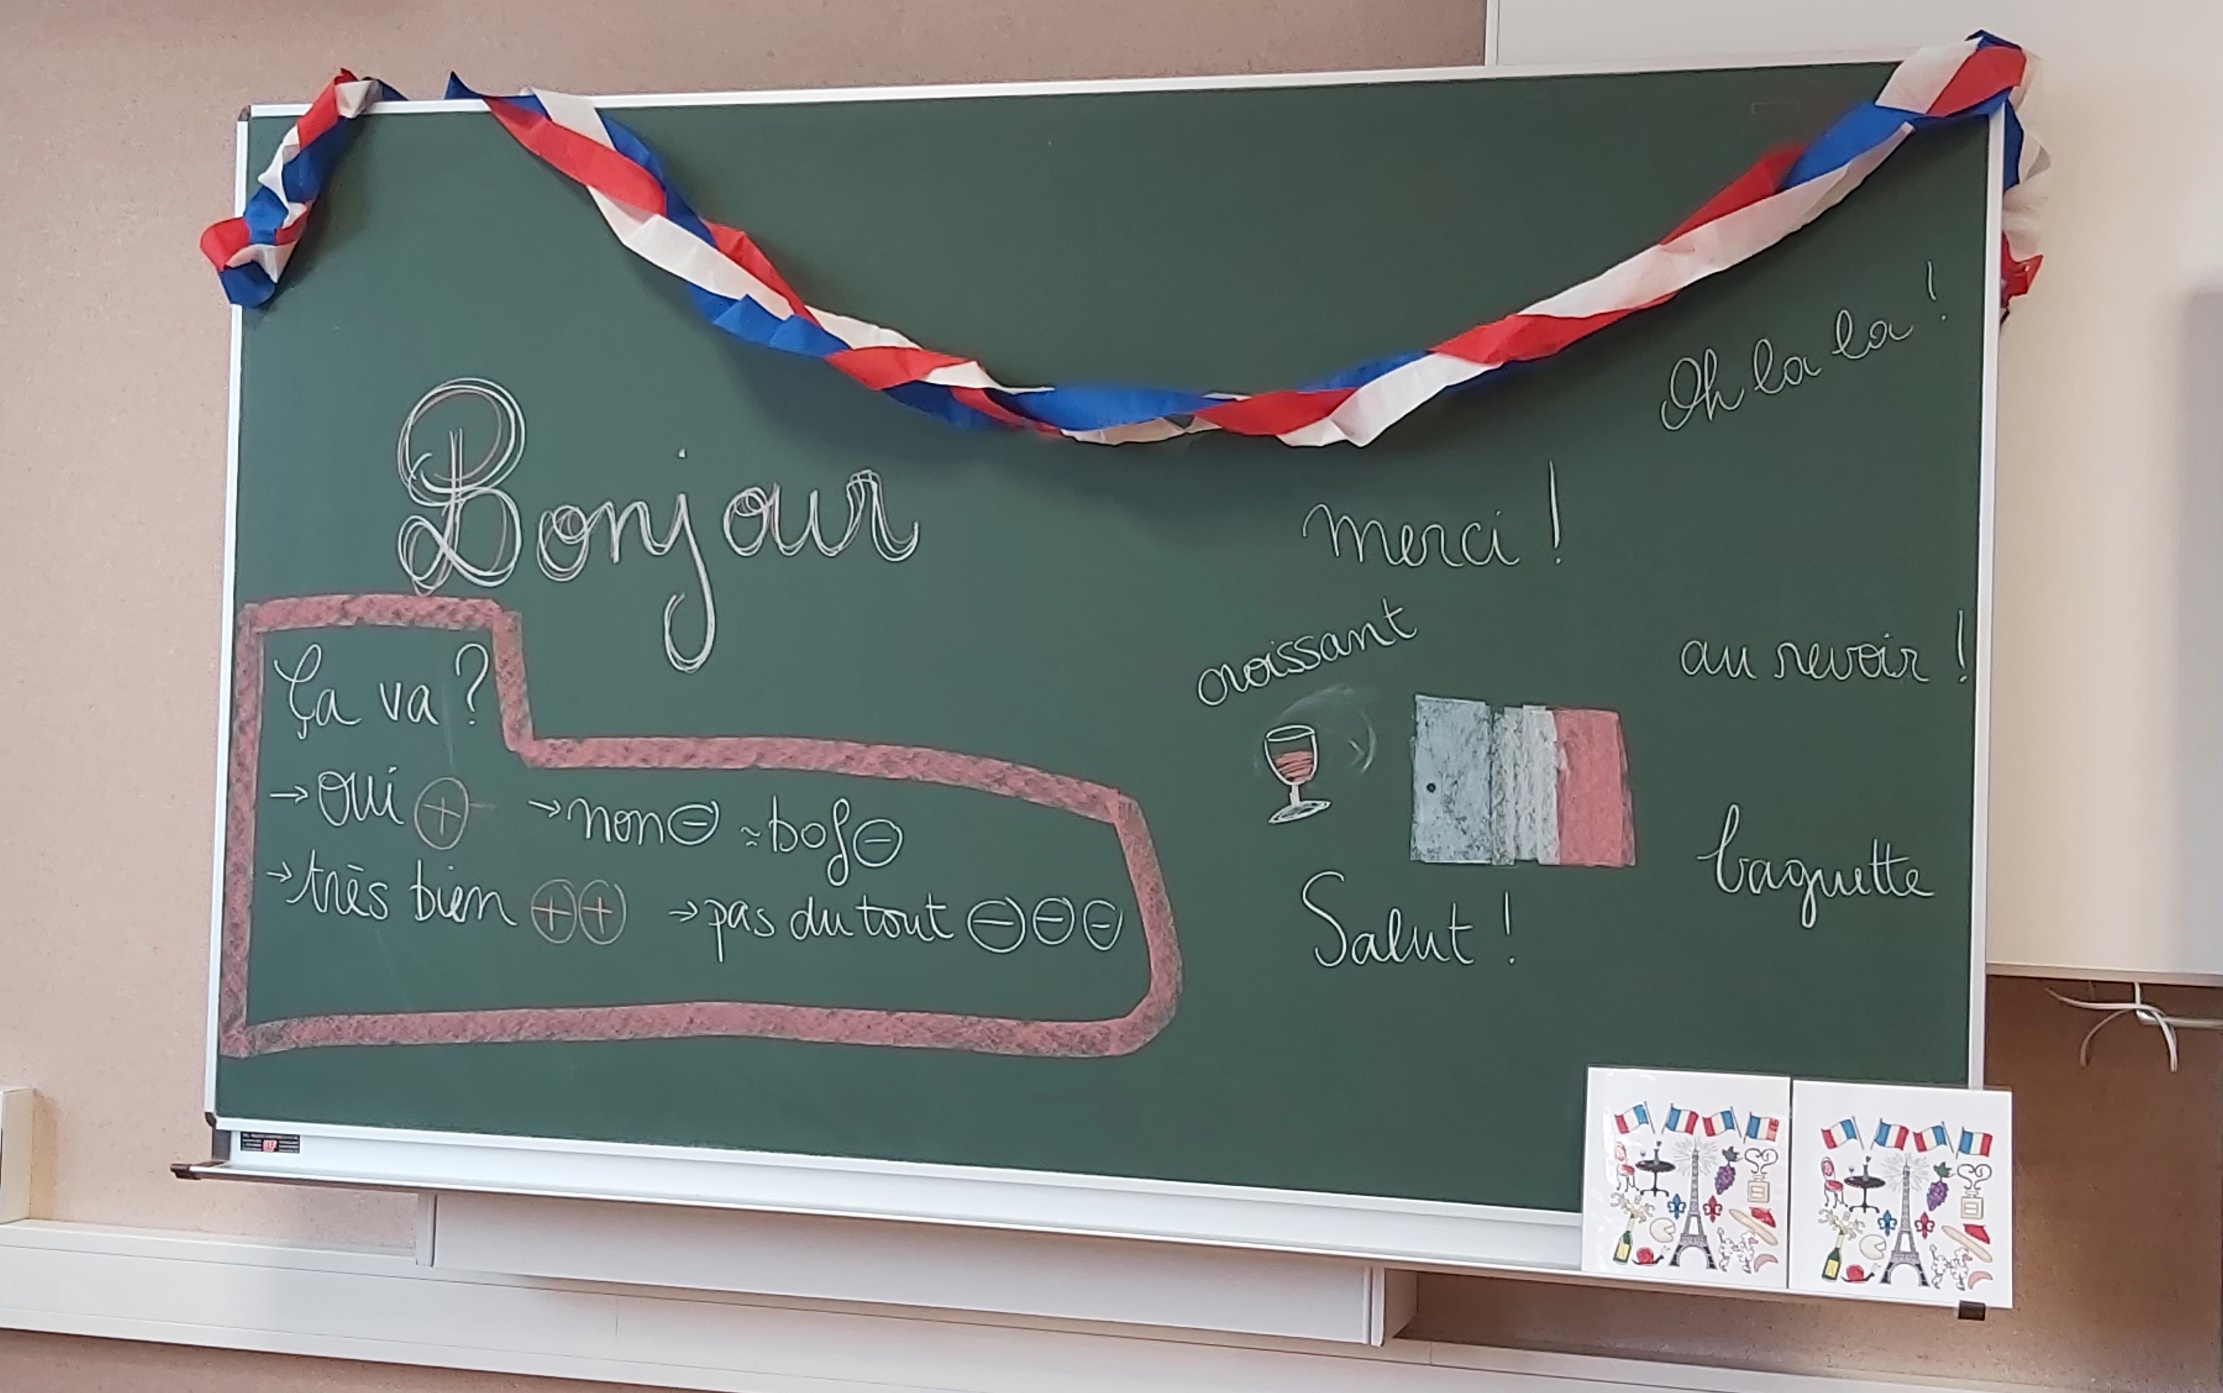 Oh la la !
Bonjour
merci !
croissant
au revoir !
Ça va ?
→ oui ⊕ → non ⊖ ≈ bof ⊖
→ très bien ⊕⊕ → pas du tout ⊖⊖⊖
baguette
Salut !